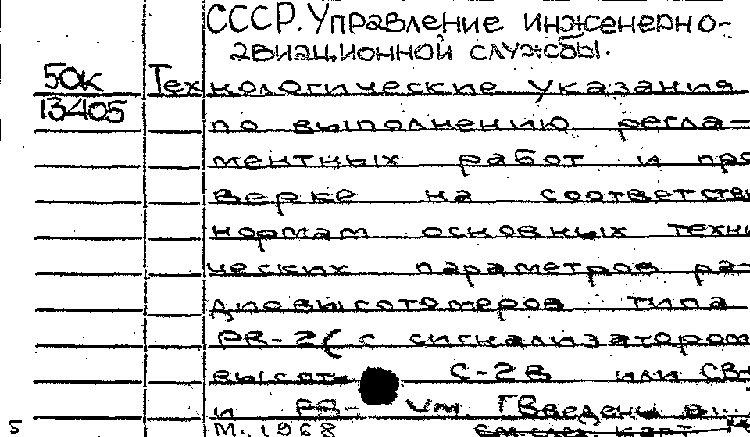 СССР. Управление инженерно-
авиационной службы.
50к Технологические указания
13405 по выполнению регла-
ментных работ и про
верке на соответстви
нормам основных техни
ческих параметров ра-
диовысотомеров типа
РВ-2 (с сигнализатором
высот С-2В или СВ-
и РВ- Ум. [Введены
М., 1968 см. след. карт.